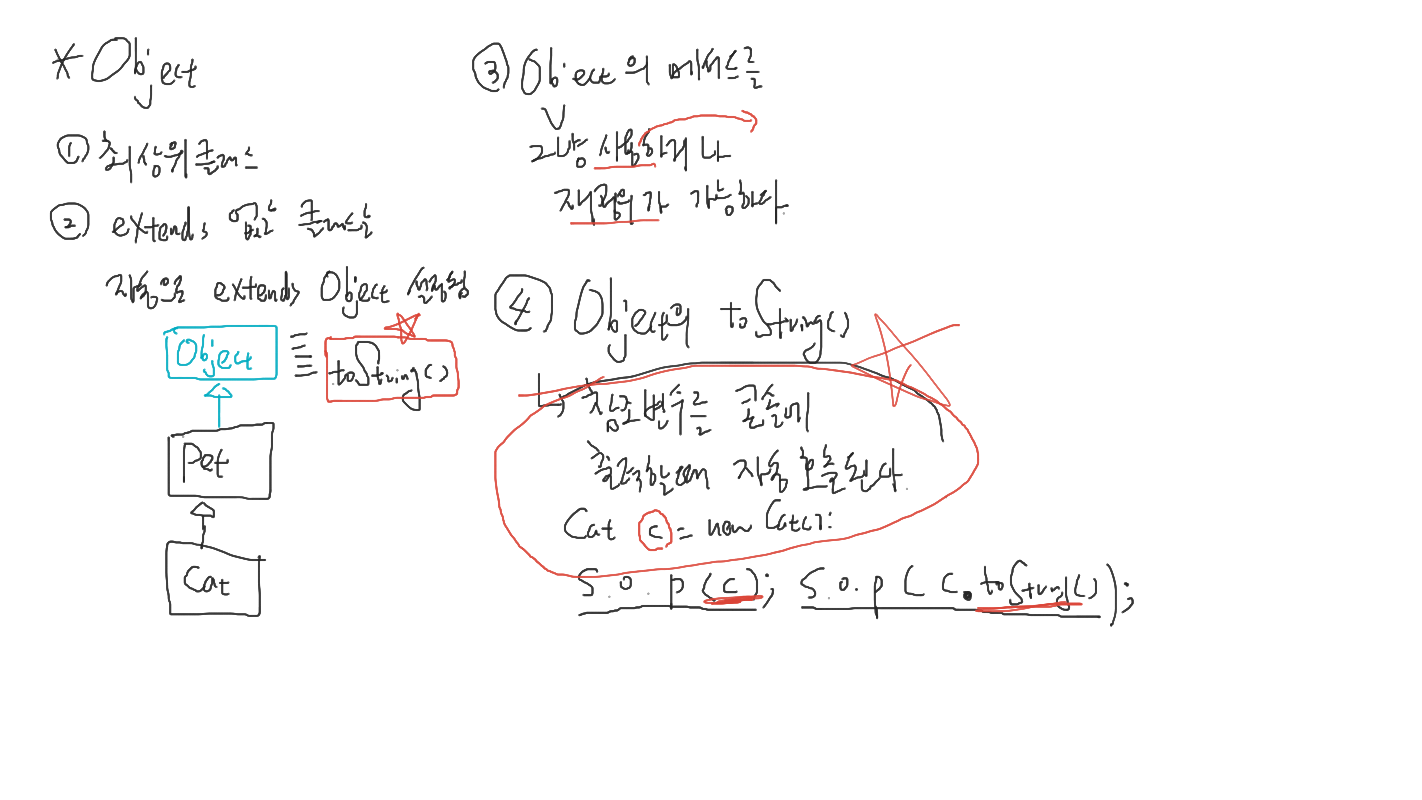 * Object
① 최상위클래스
② extends 없는 클래스는
자동으로 extends Object 설정됨
Object
toString()
Pet
Cat
③ Object의 메서드를
그냥 사용하거나
재정의가 가능하다.
④ Object의 toString()
↳ 참조변수를 콘솔에
출력할때 자동 호출된다.
Cat c = new Cat();
S.O.P(c); S.O.P(C.toString());